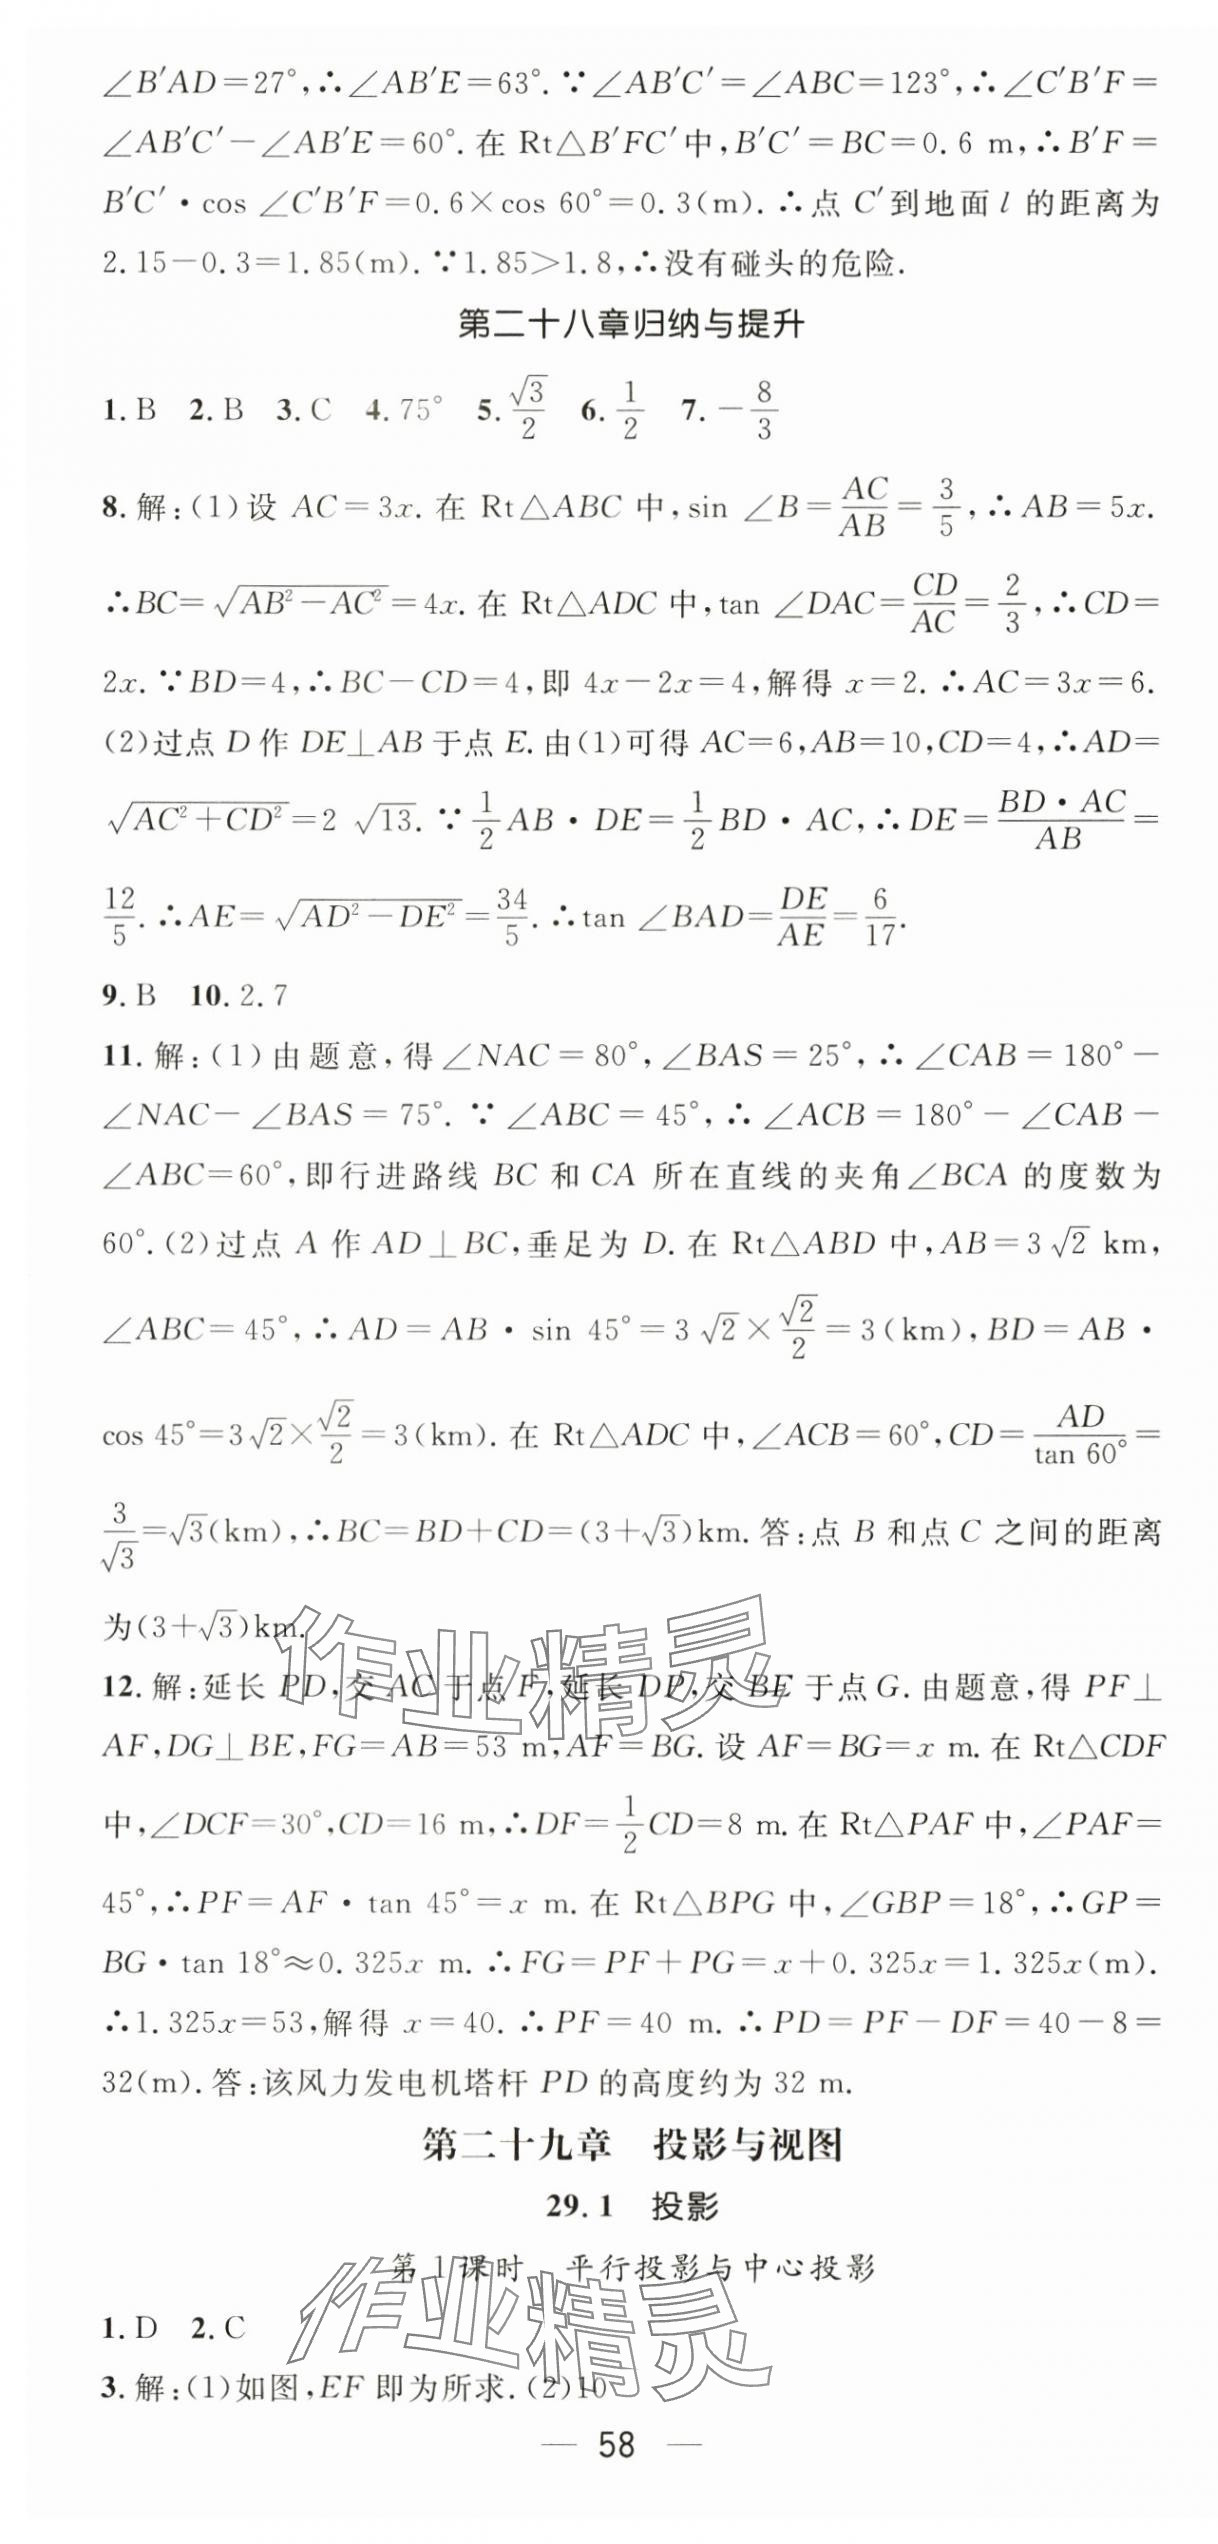 ∠B′AD=27°,∴∠AB′E=63°.∵∠AB′C′=∠ABC=123°,∴∠C′B′F=
∠AB′C′-∠AB′E=60°.在 Rt△B′FC′中,B′C′=BC=0.6 m,∴B′F=
B′C′·cos ∠C′B′F=0.6×cos 60°=0.3(m).∴点 C′到地面 l 的距离为
2.15-0.3=1.85(m).∵1.85>1.8,∴没有碰头的危险.
第二十八章归纳与提升
1.B 2.B 3.C 4.75° 5.√3/2 6.1/2 7.-8/3
8.解:(1)设 AC=3x.在 Rt△ABC 中,sin ∠B=AC/AB=3/5,∴AB=5x.
∴BC=√(AB²-AC²)=4x.在 Rt△ADC 中,tan ∠DAC=CD/AC=2/3,∴CD=
2x.∵BD=4,∴BC-CD=4,即 4x-2x=4,解得 x=2.∴AC=3x=6.
(2)过点 D 作 DE⊥AB 于点 E.由(1)可得 AC=6,AB=10,CD=4,∴AD=
√(AC²+CD²)=2√13.∵1/2AB·DE=1/2BD·AC,∴DE=BD·AC/AB=
12/5.∴AE=√(AD²-DE²)=34/5.∴tan ∠BAD=DE/AE=6/17.
9.B 10.2.7
11.解:(1)由题意,得∠NAC=80°,∠BAS=25°,∴∠CAB=180°-
∠NAC-∠BAS=75°.∵∠ABC=45°,∴∠ACB=180°-∠CAB-
∠ABC=60°,即行进路线 BC 和 CA 所在直线的夹角∠BCA 的度数为
60°.(2)过点 A 作 AD⊥BC,垂足为 D.在 Rt△ABD 中,AB=3√2 km,
∠ABC=45°,∴AD=AB·sin 45°=3√2×√2/2=3(km),BD=AB·
cos 45°=3√2×√2/2=3(km).在 Rt△ADC 中,∠ACB=60°,CD=AD/tan 60°=
3/√3=√3(km),∴BC=BD+CD=(3+√3)km.答:点 B 和点 C 之间的距离
为(3+√3)km.
12.解:延长 PD,交 AC 于点 F,延长 DP,交 BE 于点 G.由题意,得 PF⊥
AF,DG⊥BE,FG=AB=53 m,AF=BG.设 AF=BG=x m.在 Rt△CDF
中,∠DCF=30°,CD=16 m,∴DF=1/2CD=8 m.在 Rt△PAF 中,∠PAF=
45°,∴PF=AF·tan 45°=x m.在 Rt△BPG 中,∠GBP=18°,∴GP=
BG·tan 18°≈0.325x m.∴FG=PF+PG=x+0.325x=1.325x(m).
∴1.325x=53,解得 x=40.∴PF=40 m.∴PD=PF-DF=40-8=
32(m).答:该风力发电机塔杆 PD 的高度约为 32 m.
第二十九章 投影与视图
29.1 投影
第 1 课时 平行投影与中心投影
1.D 2.C
3.解:(1)如图,EF 即为所求.(2)10
— 58 —
作业精灵
作业精灵